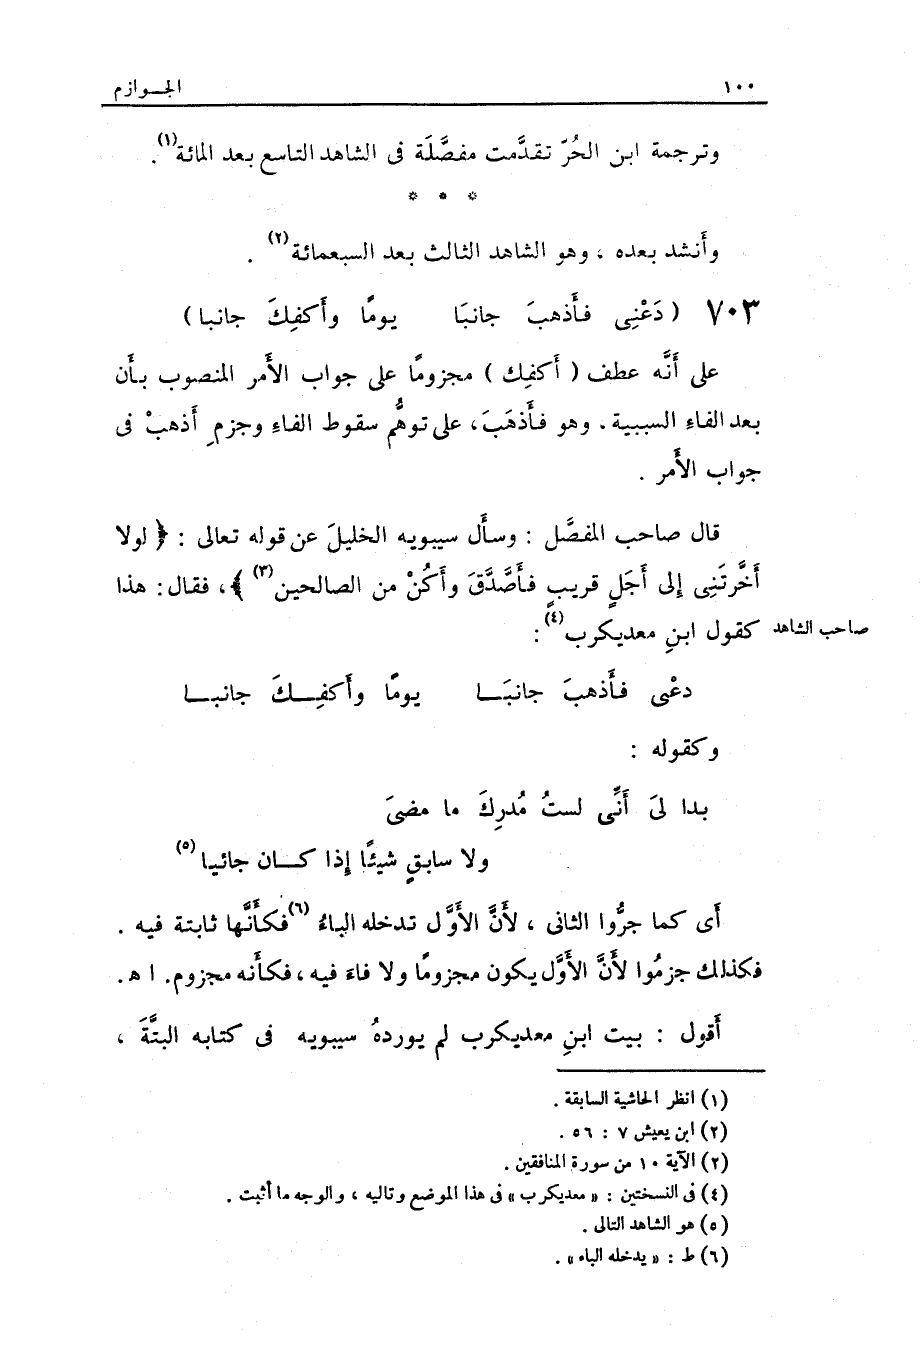 ١٠٠ الجـوازم
وترجمة ابن الحُرّ تقدَّمت مفصَّلَة فى الشاهد التاسع بعد المائة(١).
* * *
وأَنشد بعده ، وهو الشاهد الثالث بعد السبعمائة(٢) .
٧٠٣ ( دَعْنِى فأَذهبَ جانبَا يومًا وأَكفِكَ جانبا )
على أَنَّه عطف ( أَكفِك ) مجزومًا على جواب الأَمر المنصوب بأَن
بعد الفاءِ السببية . وهو فأَذهَبَ ، على توهُّم سقوط الفاء وجزمِ أَذهبْ فى
جواب الأَمر .
قال صاحب المفصَّل : وسأَل سيبويه الخليلَ عن قوله تعالى : ﴿ لولا
أَخَّرتَنِى إِلى أَجَلٍ قريبٍ فأَصَّدَّقَ وأَكُنْ من الصالحين(٣) ﴾ ، فقال : هذا
صاحب الشاهد كقول ابنِ معديكرب(٤) :
دعْنى فأَذهبَ جانبَـا يومًا وأَكفِـكَ جانبـا
وكقوله :
بدا لىَ أَنِّى لستُ مُدرِكَ ما مضىَ
ولا سابقٍ شيئًا إِذا كـان جائيا(٥)
أَى كما جرُّوا الثانى ، لأَنَّ الأَوَّل تدخله الباءُ(٦) فكأَنَّها ثابتة فيه .
فكذلك جزمُوا لأَنَّ الأَوَّل يكون مجزومًا ولا فاءَ فيه ، فكأَنه مجزوم . ا ه‍ .
أَقول : بيت ابنِ معديكرب لم يوردهُ سيبويه فى كتابه البتَّةَ ،
(١) انظر الحاشية السابقة .
(٢) ابن يعيش ٧ : ٥٦ .
(٢) الآية ١٠ من سورة المنافقين .
(٤) فى النسختين : « معديكرب » فى هذا الموضع وتاليه ، والوجه ما أثبت .
(٥) هو الشاهد التالى .
(٦) ط : « يدخله الباء » .